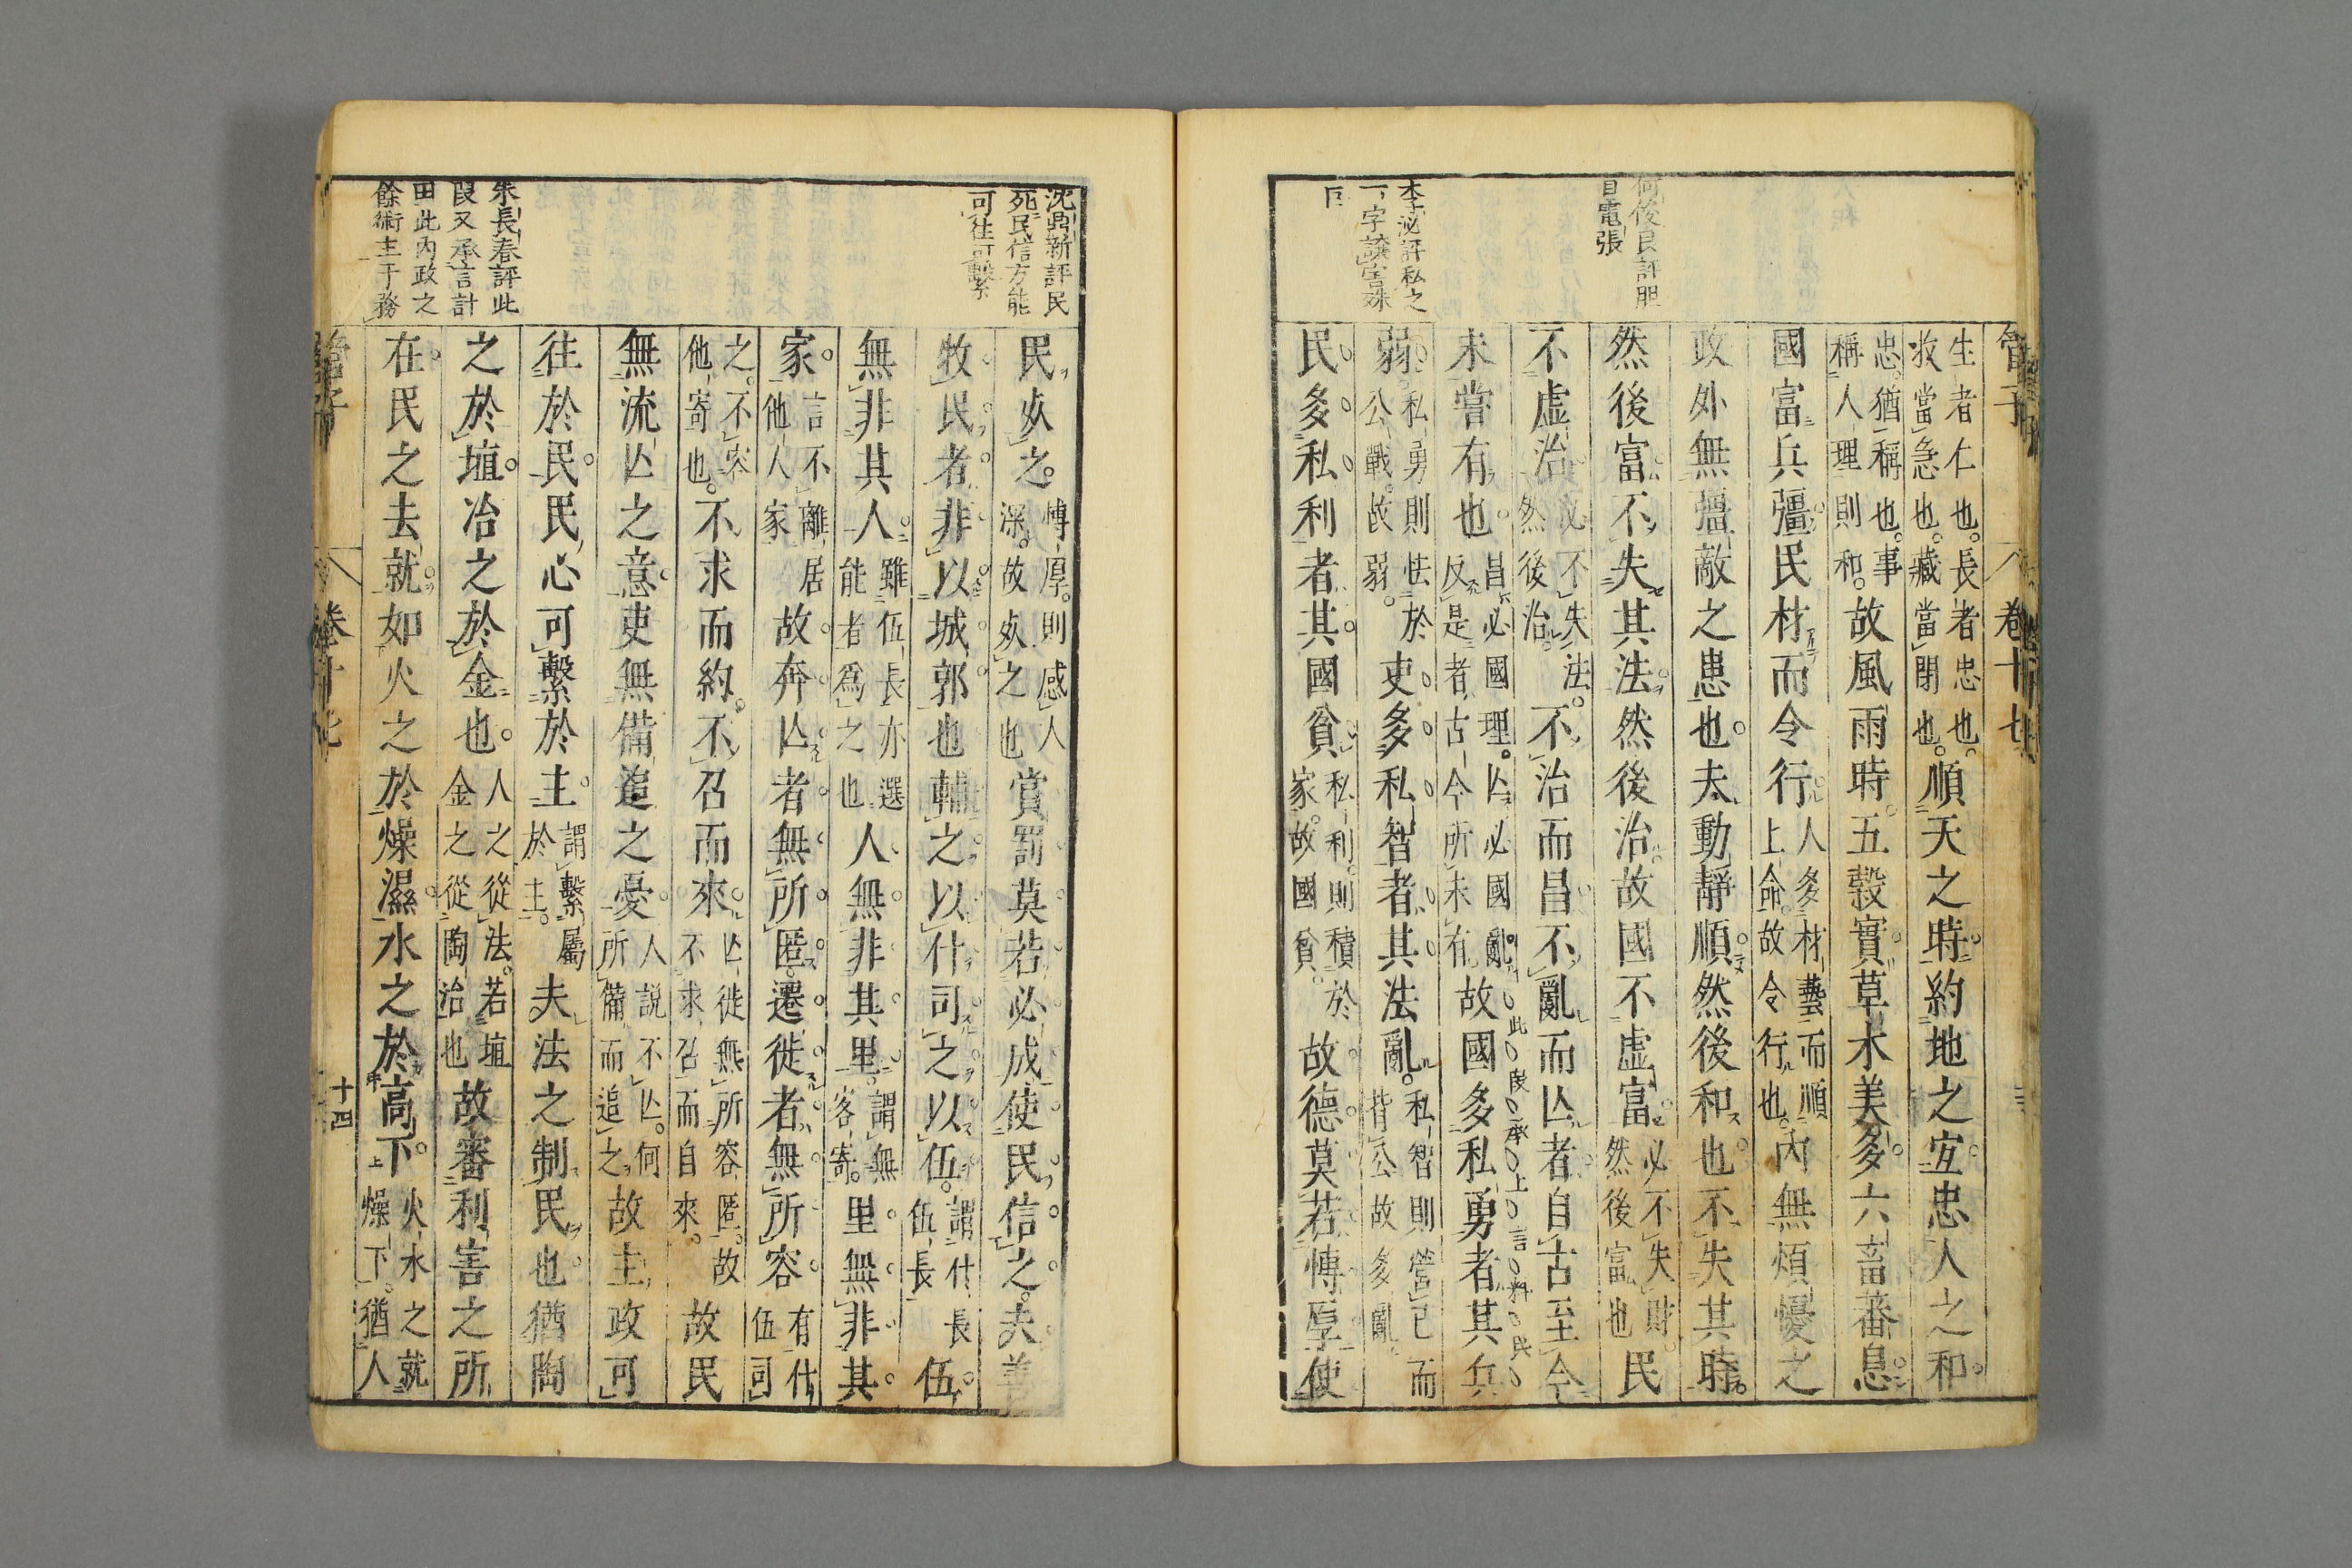 管子
卷十七
何俊良評胆
目電張
李泌評私之
一字讓害殊
生者仁也。長者忠也。
收當急也。藏當閉也。順天之時約地之宜忠人之和
忠。猶稱也。事
稱人理則和。故風雨時五穀實草木美多六畜蕃息
國富兵彊民材而令行人多材藝而順
上命。故令行也。內無煩憂之
政外無彊敵之患也夫動靜順然後和也不失其時
然後富不失其法然後治故國不虛富必不失財。
然後富也民
不虛治必不失法。
然後治。不治而昌不亂而亾者自古至今
此段承上言料民
未嘗有也昌必國理。亾必國亂
反是者古今所未有故國多私勇者其兵
弱。私勇則怯於
公戰。故弱。吏多私智者其法亂。私智則營已而
背公故多亂民
多私利者其國貧私利。則積於
家。故國貧故德莫若愽厚使
沈鼎新評民
死民信方能
可往可繫
朱長春評此
良又承言計
田此內政之
餘術主于務
民死之。愽厚。則感人
深。故死之也賞罰莫若必成使民信之。夫善
牧民者非以城郭也輔之以什司之以伍。謂什長
伍長伍
無非其人雖伍長亦選
能者爲之也人無非其里。謂無
客寄。里無非其
家。言不離居
他人家故奔亾者無所匿。遷徙者無所容有什
伍司
之。不容
他寄也。不求而約。不召而來亾徙無所容匿。故
不求召而自來。故民
無流亾之意吏無備追之憂人說不亾。何
所備而追之故主政可
往於民民心可繫於主謂繫屬
於主。夫法之制民也猶陶
之於埴冶之於金也人之從法。若埴
金之從陶冶也故審利害之所
在民之去就如火之於燥濕水之於高下火水之就
燥下。猶人
管子
卷十七
十四